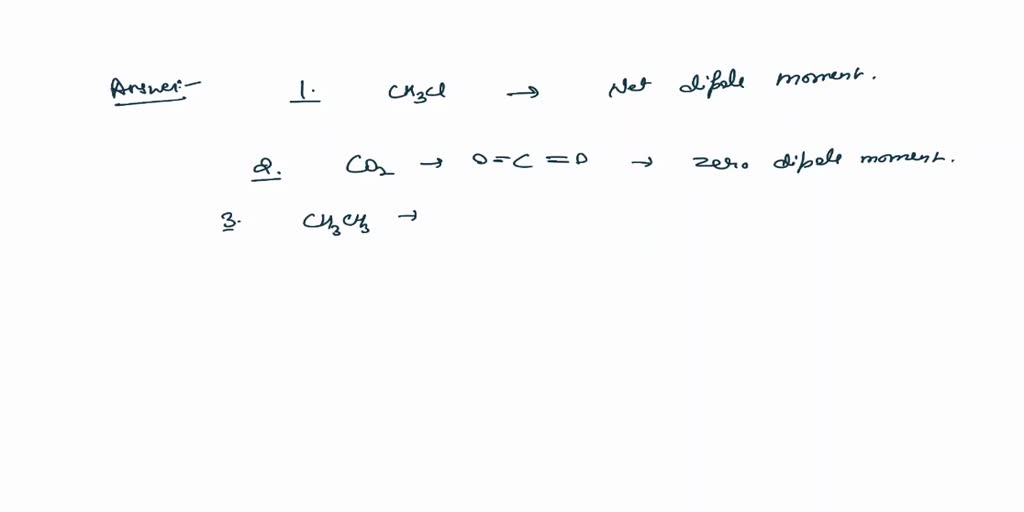 Answer:- 1. CH3Cl → Net dipole moment.
2. CO2 → O=C=O → zero dipole moment.
3. CH3CH3 →